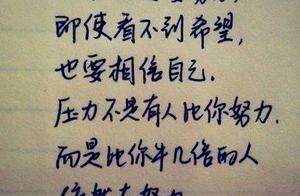 即使看不到希望,
也要相信自己.
压力不是有人比你努力.
而是比你牛几倍的人